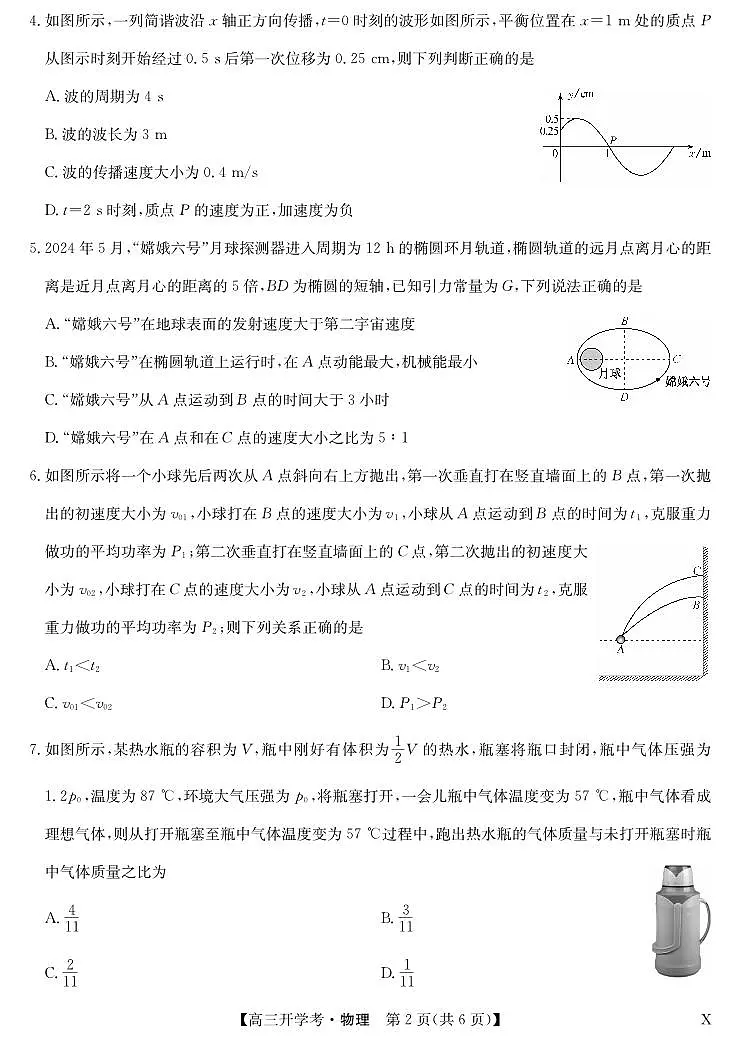 4. 如图所示,一列简谐波沿 x 轴正方向传播,t=0 时刻的波形如图所示,平衡位置在 x=1 m 处的质点 P
从图示时刻开始经过 0.5 s 后第一次位移为 0.25 cm,则下列判断正确的是
A. 波的周期为 4 s
B. 波的波长为 3 m
C. 波的传播速度大小为 0.4 m/s
D. t=2 s 时刻,质点 P 的速度为正,加速度为负
y/cm
0.5
0.25
P
0
1
x/m
5. 2024 年 5 月,“嫦娥六号”月球探测器进入周期为 12 h 的椭圆环月轨道,椭圆轨道的远月点离月心的距
离是近月点离月心的距离的 5 倍,BD 为椭圆的短轴,已知引力常量为 G,下列说法正确的是
A. “嫦娥六号”在地球表面的发射速度大于第二宇宙速度
B. “嫦娥六号”在椭圆轨道上运行时,在 A 点动能最大,机械能最小
C. “嫦娥六号”从 A 点运动到 B 点的时间大于 3 小时
D. “嫦娥六号”在 A 点和在 C 点的速度大小之比为 5∶1
B
A
月球
C
嫦娥六号
D
6. 如图所示将一个小球先后两次从 A 点斜向右上方抛出,第一次垂直打在竖直墙面上的 B 点,第一次抛
出的初速度大小为 v₀₁,小球打在 B 点的速度大小为 v₁,小球从 A 点运动到 B 点的时间为 t₁,克服重力
做功的平均功率为 P₁;第二次垂直打在竖直墙面上的 C 点,第二次抛出的初速度大
小为 v₀₂,小球打在 C 点的速度大小为 v₂,小球从 A 点运动到 C 点的时间为 t₂,克服
重力做功的平均功率为 P₂;则下列关系正确的是
A. t₁<t₂ B. v₁<v₂
C. v₀₁<v₀₂ D. P₁>P₂
C
B
A
7. 如图所示,某热水瓶的容积为 V,瓶中刚好有体积为 1/2 V 的热水,瓶塞将瓶口封闭,瓶中气体压强为
1.2p₀,温度为 87 ℃,环境大气压强为 p₀,将瓶塞打开,一会儿瓶中气体温度变为 57 ℃,瓶中气体看成
理想气体,则从打开瓶塞至瓶中气体温度变为 57 ℃过程中,跑出热水瓶的气体质量与未打开瓶塞时瓶
中气体质量之比为
A. 4/11 B. 3/11
C. 2/11 D. 1/11
【高三开学考·物理 第 2 页(共 6 页)】 X